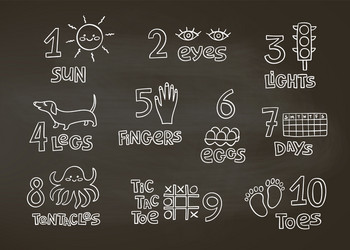 1
SUN
2
eyes
3
LiGHTS
4 LeGS
5
FiNGeRS
6
eGGS
7
DAYS
8
TeNTACLeS
TiC
TAC
TOe
9
10
TOeS